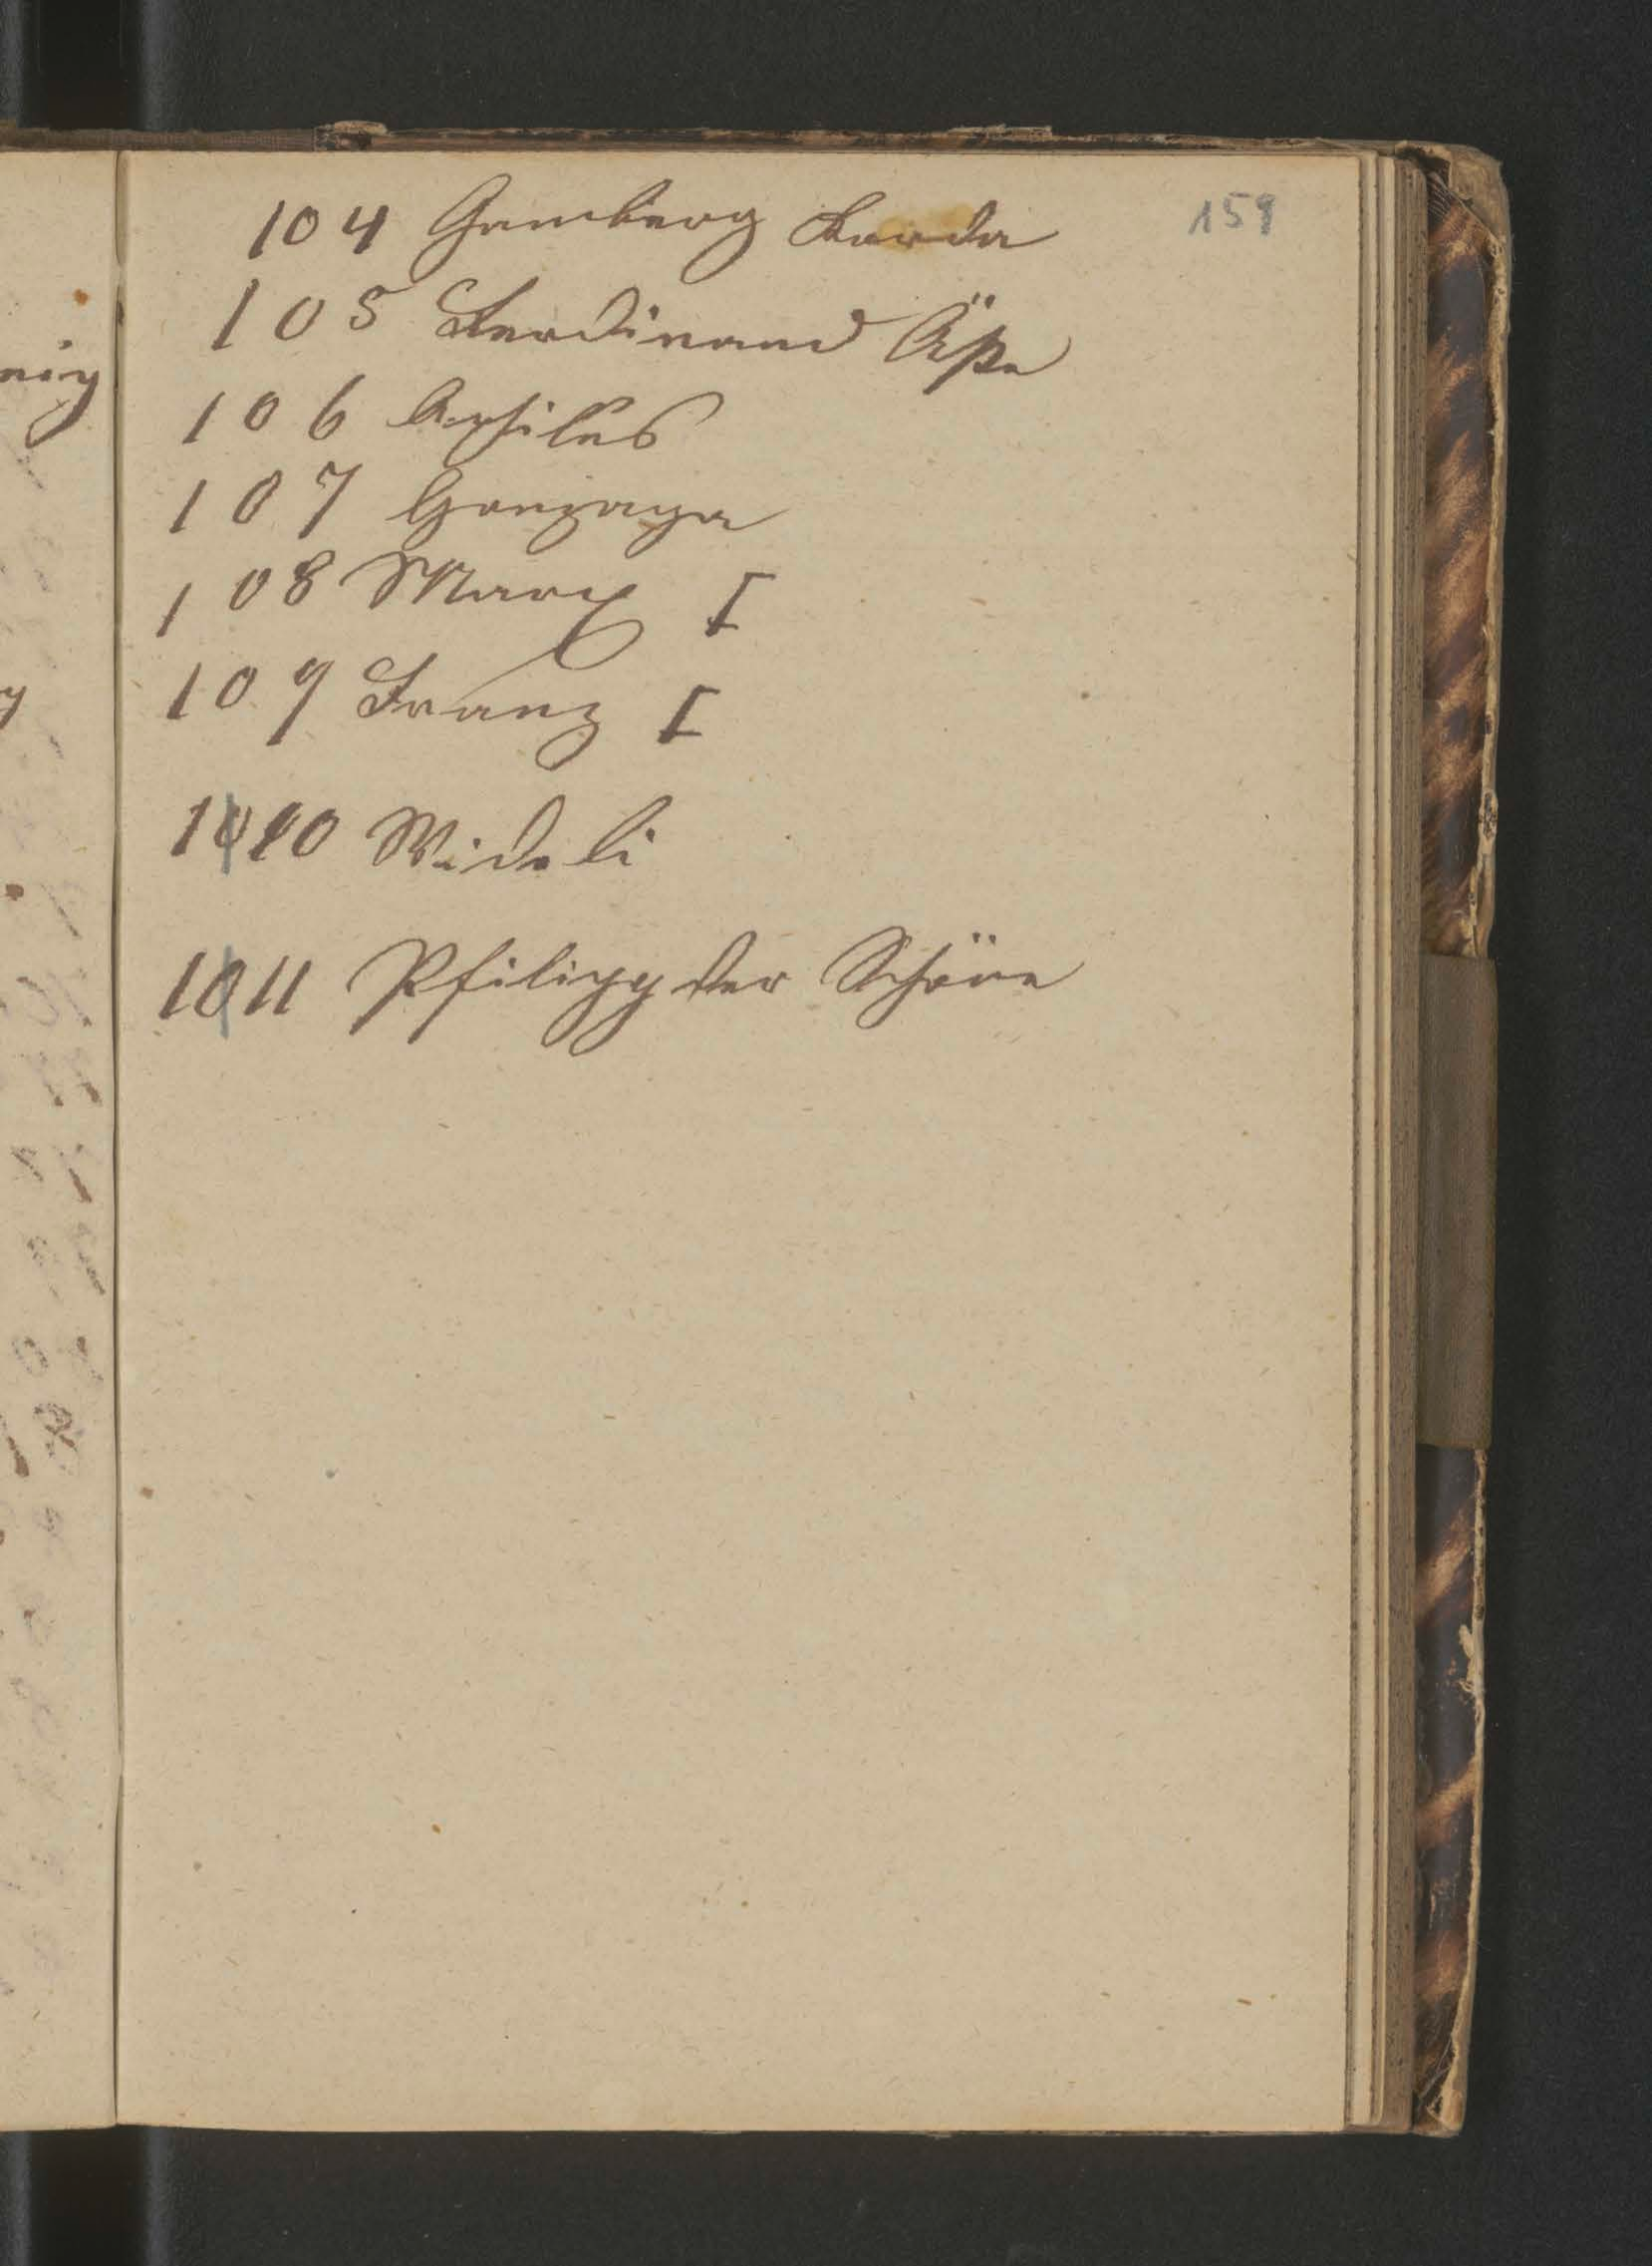 159
104 Gemberg Korda
105 Ferdinand Äße
106 Achiles
107 Gonzaga
108 Marx I
109 Franz I
1010 Mideli
1011 Philipp der Schöne